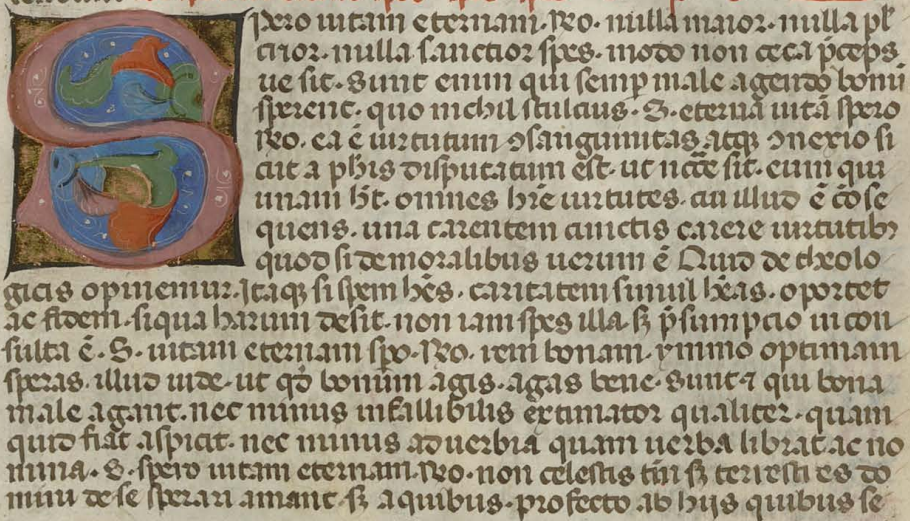 Spero uitam eternam. Ro. nulla maior. nulla pl̅
crior. nulla sanctior spes. modo non ceca p̅ceps
ue sit. Sunt enim qui semp male agendo boni
sperent. quo nichil stultius. S. eterna uitā spero
Ro. ea ē uirtutum ꝯsanguinitas atqꝫ ꝯnexio si
cut a phis disputatum est. ut nccē sit. eum qui
unam h̅t. omnes h̅re uirtutes. cui illud ē cōse
quens. una carentem cunctis carere uirtutibꝫ
quod si de moralibus uerum ē Quid de theolo
gicis opinemur. Itaqꝫ si spem h̅es. caritatem simul h̅eas. oportet
ac fidem. siqua harum desit. non iam spes illa. sꝫ p̅sumpcio incon
sulta ē. S. uitam eternam sp̅o. Ro. rem bonam. ymmo optimam
speras. illud uide. ut qd̅ bonum agis. agas bene. Sunt ⁊ qui bona
male agant. nec minus infallibilis extimator qualiter. quam
quid fiat aspicit. nec minus aduerbia quam uerba librat. ac no
mina. S. spero uitam eternam. Ro. non celestis tm̅ sꝫ terrestres do
mini de se sperari amant. sꝫ a quibus. profecto ab hijs quibus se